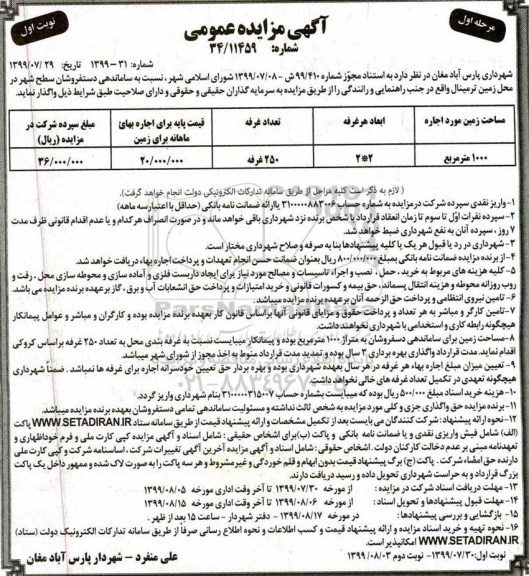 مرحله اول
آگهی مزایده عمومی
نوبت اول
شماره: ۳۴/۱۱۴۵۹
شماره: ۳۱ - ۱۳۹۹ تاریخ: ۱۳۹۹/۰۷/۲۹
شهرداری پارس آباد مغان در نظر دارد به استناد مجوز شماره ۹۹/۴۱۰ ش - ۱۳۹۹/۰۷/۰۸ شورای اسلامی شهر، نسبت به ساماندهی دستفروشان سطح شهر در
محل زمین ترمینال واقع در جنب راهنمایی و رانندگی را از طریق مزایده به سرمایه گذاران حقیقی و حقوقی و دارای صلاحیت طبق شرایط ذیل واگذار نماید.
مساحت زمین مورد اجاره | ابعاد هرغرفه | تعداد غرفه | قیمت پایه برای اجاره بهائ ماهانه برای زمین | مبلغ سپرده شرکت در مزایده (ریال)
۱۰۰۰ مترمربع | ۲*۲ | ۲۵۰ غرفه | ۲۰/۰۰۰/۰۰۰ | ۳۶/۰۰۰/۰۰۰
( لازم به ذکر است کلیه مراحل از طریق سامانه تدارکات الکترونیکی دولت انجام خواهد گرفت).
۱- واریز نقدی سپرده شرکت درمزایده به شماره حساب ۳۱۰۰۰۰۰۸۸۳۰۰۶ یاارائه ضمانت نامه بانکی (حداقل با اعتبارسه ماهه)
۲- سپرده نفرات اول تا سوم تا زمان انعقاد قرارداد با شخص برنده نزد شهرداری باقی خواهد ماند و در صورت انصراف هرکدام و یا عدم اقدام قانونی ظرف مدت
۷ روز، سپرده آنان به نفع شهرداری ضبط خواهد شد.
۳- شهرداری در رد یا قبول هر یک یا کلیه پیشنهادها بنا به صرفه و صلاح شهرداری مختار است.
۴- از برنده مزایده ضمانت نامه بانکی بمبلغ ۸۰۰/۰۰۰/۰۰۰ ریال بعنوان ضمانت حسن انجام تعهدات و پرداخت اجاره بهاء دریافت خواهد شد.
۵- کلیه هزینه های مربوط به خرید، حمل، نصب و اجراء تاسیسات و مصالح مورد نیاز برای ایجاد داربست فلزی و آماده سازی و محوطه سازی محل، رفت و
روب روزانه محوطه و هزینه انتقال پسماند، حق بیمه و کسورات قانونی و خرید امتیازات و پرداخت حق انشعابات آب و برق، گاز برعهده برنده مزایده می باشد.
۶- تامین نیروی انتظامی و پرداخت حق الزحمه آنان برعهده برنده مزایده میباشد.
۷- تامین کارگر و مباشر به هر تعداد و پرداخت حقوق و مزایای قانونی آنها براساس قانون کار بعهده برنده مزایده بوده و کارگران و مباشر و عوامل پیمانکار
هیچگونه رابطه کاری و استخدامی با شهرداری نخواهند داشت.
۸- مساحت زمین برای ساماندهی دسفروشان به متراژ ۱۰۰۰ مترمربع بوده و پیمانکار میبایست نسبت به غرفه بندی محل به تعداد ۲۵۰ غرفه براساس کروکی
اقدام نماید. مدت قرارداد واگذاری بهره برداری ۳ سال بوده و تمدید مدت قرارداد منوط به اخذ مجوز از شورای شهر میباشد.
۹- تعیین میزان مبلغ اجاره بهاء هر غرفه در هر سال بعهده شهرداری بوده و بهره بردار حق تعیین خودسرانه اجاره برای غرفه ها نمیباشد. ضمنا شهرداری
هیچگونه تعهدی در تکمیل تعداد غرفه های خالی نخواهد داشت.
۱۰- هزینه خرید اسناد مبلغ ۵۰۰/۰۰۰ ریال بوده که میبایست بشماره حساب ۳۱۰۰۰۰۰۳۱۵۰۰۷ بنام شهرداری واریز گردد.
۱۱- برنده مزایده حق واگذاری جزی و کلی مورد مزایده به شخص ثالث نداشته و مسئولیت ساماندهی تمامی دستفروشان بعهده برنده مزایده میباشد.
۱۲- نحوه ارائه پیشنهاد: شرکت کنندگان می بایست بعد از تکمیل مشخصات و ارائه پیشنهاد قیمت از طریق سامانه ستاد WWW.SETADIRAN.IR پاکت
(الف) شامل فیش واریزی نقدی و یا ضمانت نامه بانکی و پاکت (ب) برای اشخاص حقیقی: شامل اسناد و آگهی مزایده کپی کارت ملی و فرم خوداظهاری و
تعهدنامه مبنی بر عدم دخالت کارکنان دولت، اشخاص حقوقی: شامل اسناد و آگهی مزایده آخرین آگهی تغییرات شرکت، اساسنامه شرکت و کپی کارت ملی
دارنده حق امضاء شرکت. پاکت (ج) برگ پیشنهاد قیمت بدون ابهام و قلم خوردگی و غیر مشروط و هر سه پاکت را به صورت لاک شده و ممهور داخل یک پاکت
بزرگ قرارداد و به حراست شهرداری تحویل داده و رسید دریافت دارند.
۱۳- مهلت دریافت اسناد شرکت در مزایده : از مورخه ۱۳۹۹/۰۷/۳۰ تا آخر وقت اداری مورخه ۱۳۹۹/۰۸/۰۵
۱۴- مهلت قبول پیشنهادها و تحویل اسناد: از مورخه ۱۳۹۹/۰۸/۰۶ تا آخر وقت اداری مورخه ۱۳۹۹/۰۸/۱۵
۱۵- بازگشایی و بررسی پیشنهادها: در مورخه ۱۳۹۹/۰۸/۱۷ - دفتر شهردار - ساعت ۱۵ بعد از ظهر.
۱۶- نحوه تهیه و خرید اسناد مزایده و ارائه پیشنهاد قیمت و کسب اطلاعات و نحوه اطلاع رسانی صرفاً از طریق سامانه تدارکات الکترونیک دولت (ستاد)
WWW.SETADIRAN.IR امکانپذیر است.
نوبت اول: ۱۳۹۹/۰۷/۳۰ - نوبت دوم ۱۳۹۹/۰۸/۰۳
علی منفرد - شهردار پارس آباد مغان